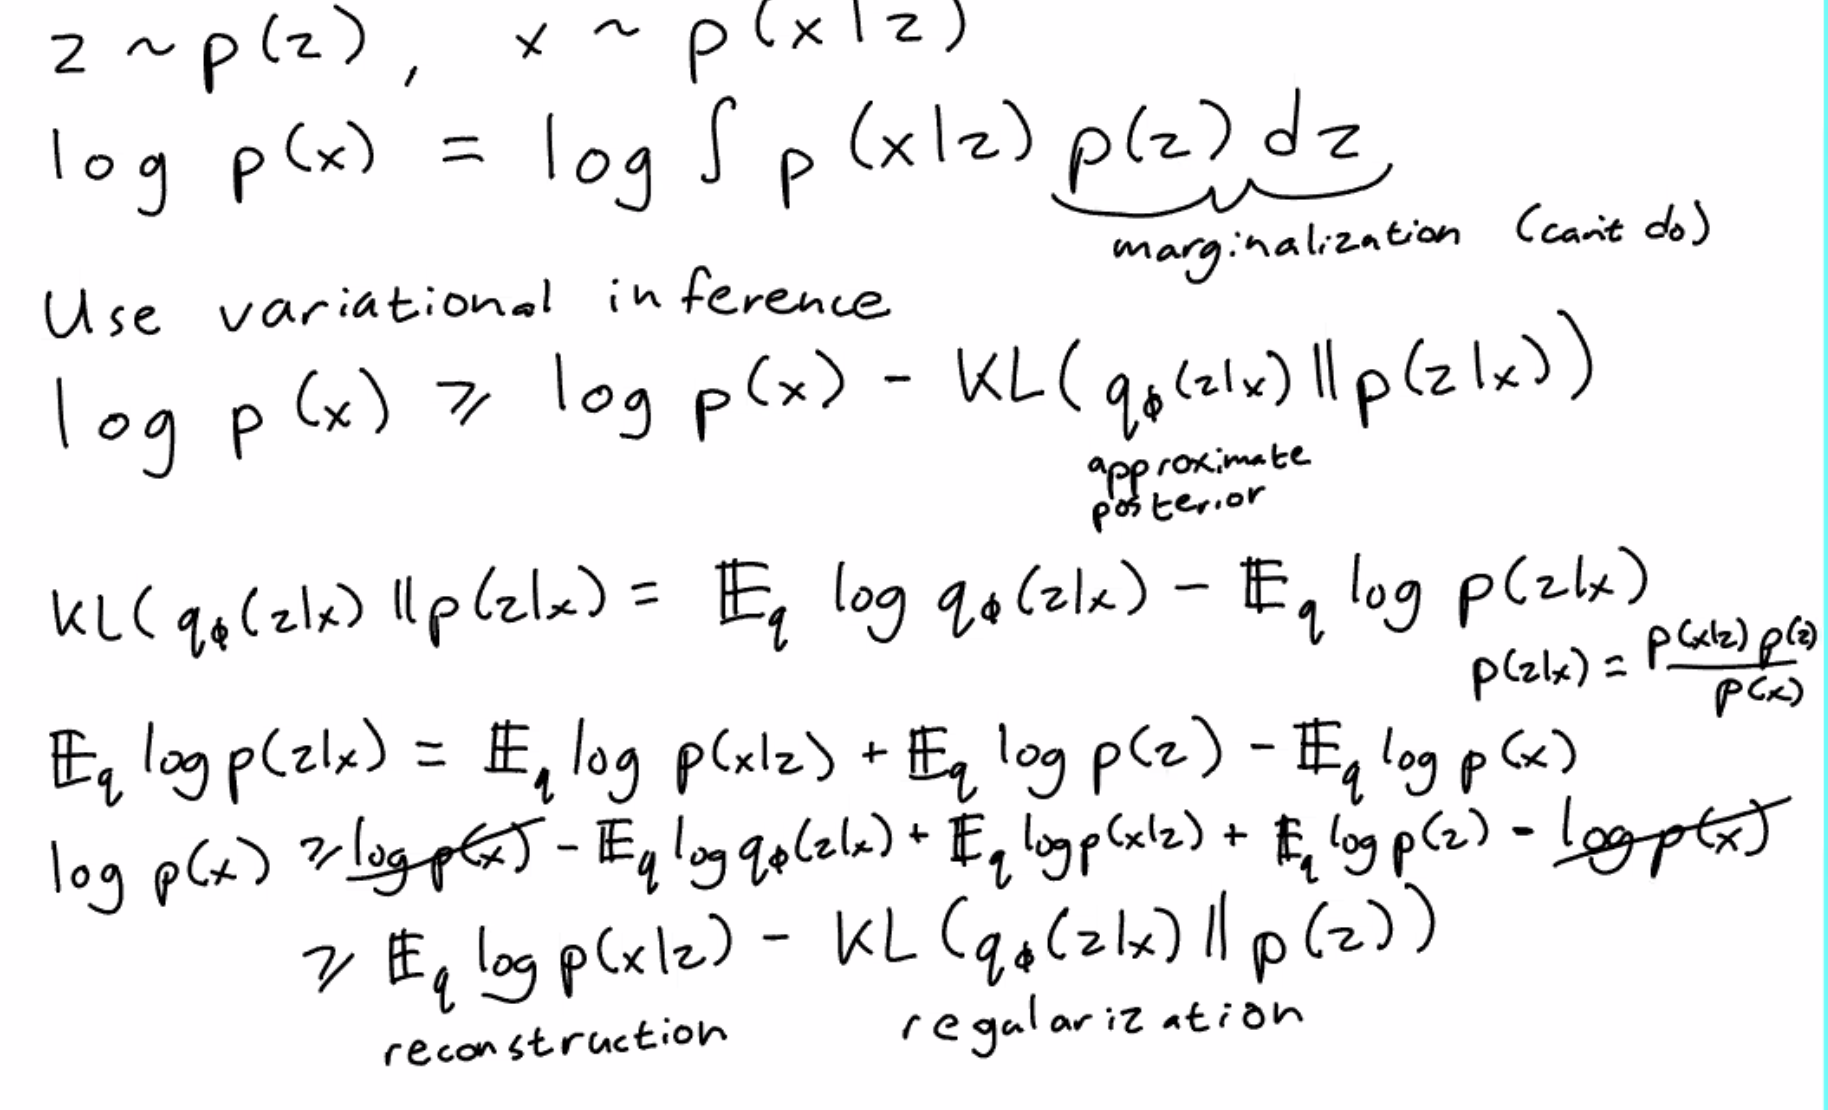 z ~ p(z), x ~ p(x|z)
log p(x) = log ∫ p(x|z) p(z) dz
marginalization (can't do)
Use variational inference
log p(x) ≥ log p(x) - KL(qϕ(z|x) || p(z|x))
approximate
posterior
KL(qϕ(z|x) || p(z|x) = 𝔼q log qϕ(z|x) - 𝔼q log p(z|x)
p(z|x) = p(x|z) p(z) / p(x)
𝔼q log p(z|x) = 𝔼q log p(x|z) + 𝔼q log p(z) - 𝔼q log p(x)
log p(x) ≥ log p(x) - 𝔼q log qϕ(z|x) + 𝔼q log p(x|z) + 𝔼q log p(z) - log p(x)
≥ 𝔼q log p(x|z) - KL(qϕ(z|x) || p(z))
reconstruction regalarization